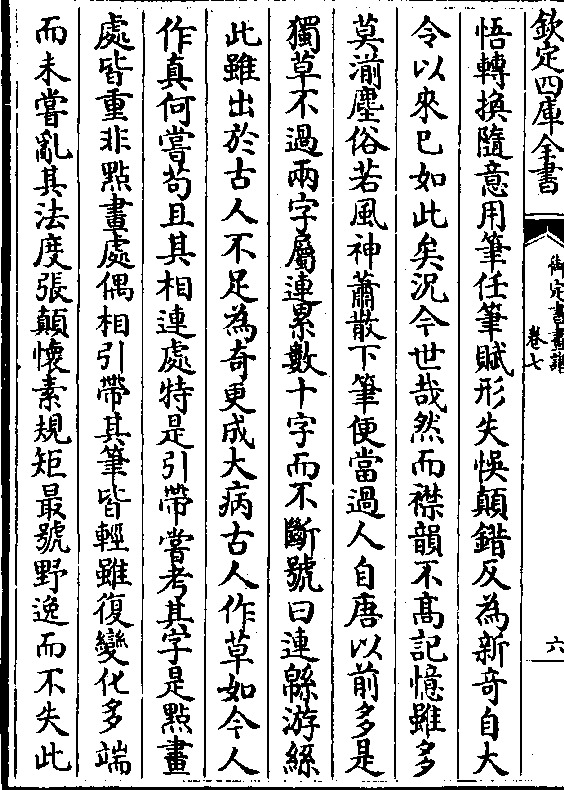 欽定四庫全書
御定書畫譜
卷七
六
悟轉換隨意用筆任筆賦形失悞顛錯反為新奇自大
令以來已如此矣況今世哉然而襟韻不髙記憶雖多
莫湔塵俗若風神蕭散下筆便當過人自唐以前多是
獨草不過兩字屬連累數十字而不斷號曰連緜游絲
此雖出於古人不足為奇更成大病古人作草如今人
作真何嘗苟且其相連處特是引帶嘗考其字是點畫
處皆重非點畫處偶相引帶其筆皆輕雖復變化多端
而未嘗亂其法度張顛懷素規矩最號野逸而不失此